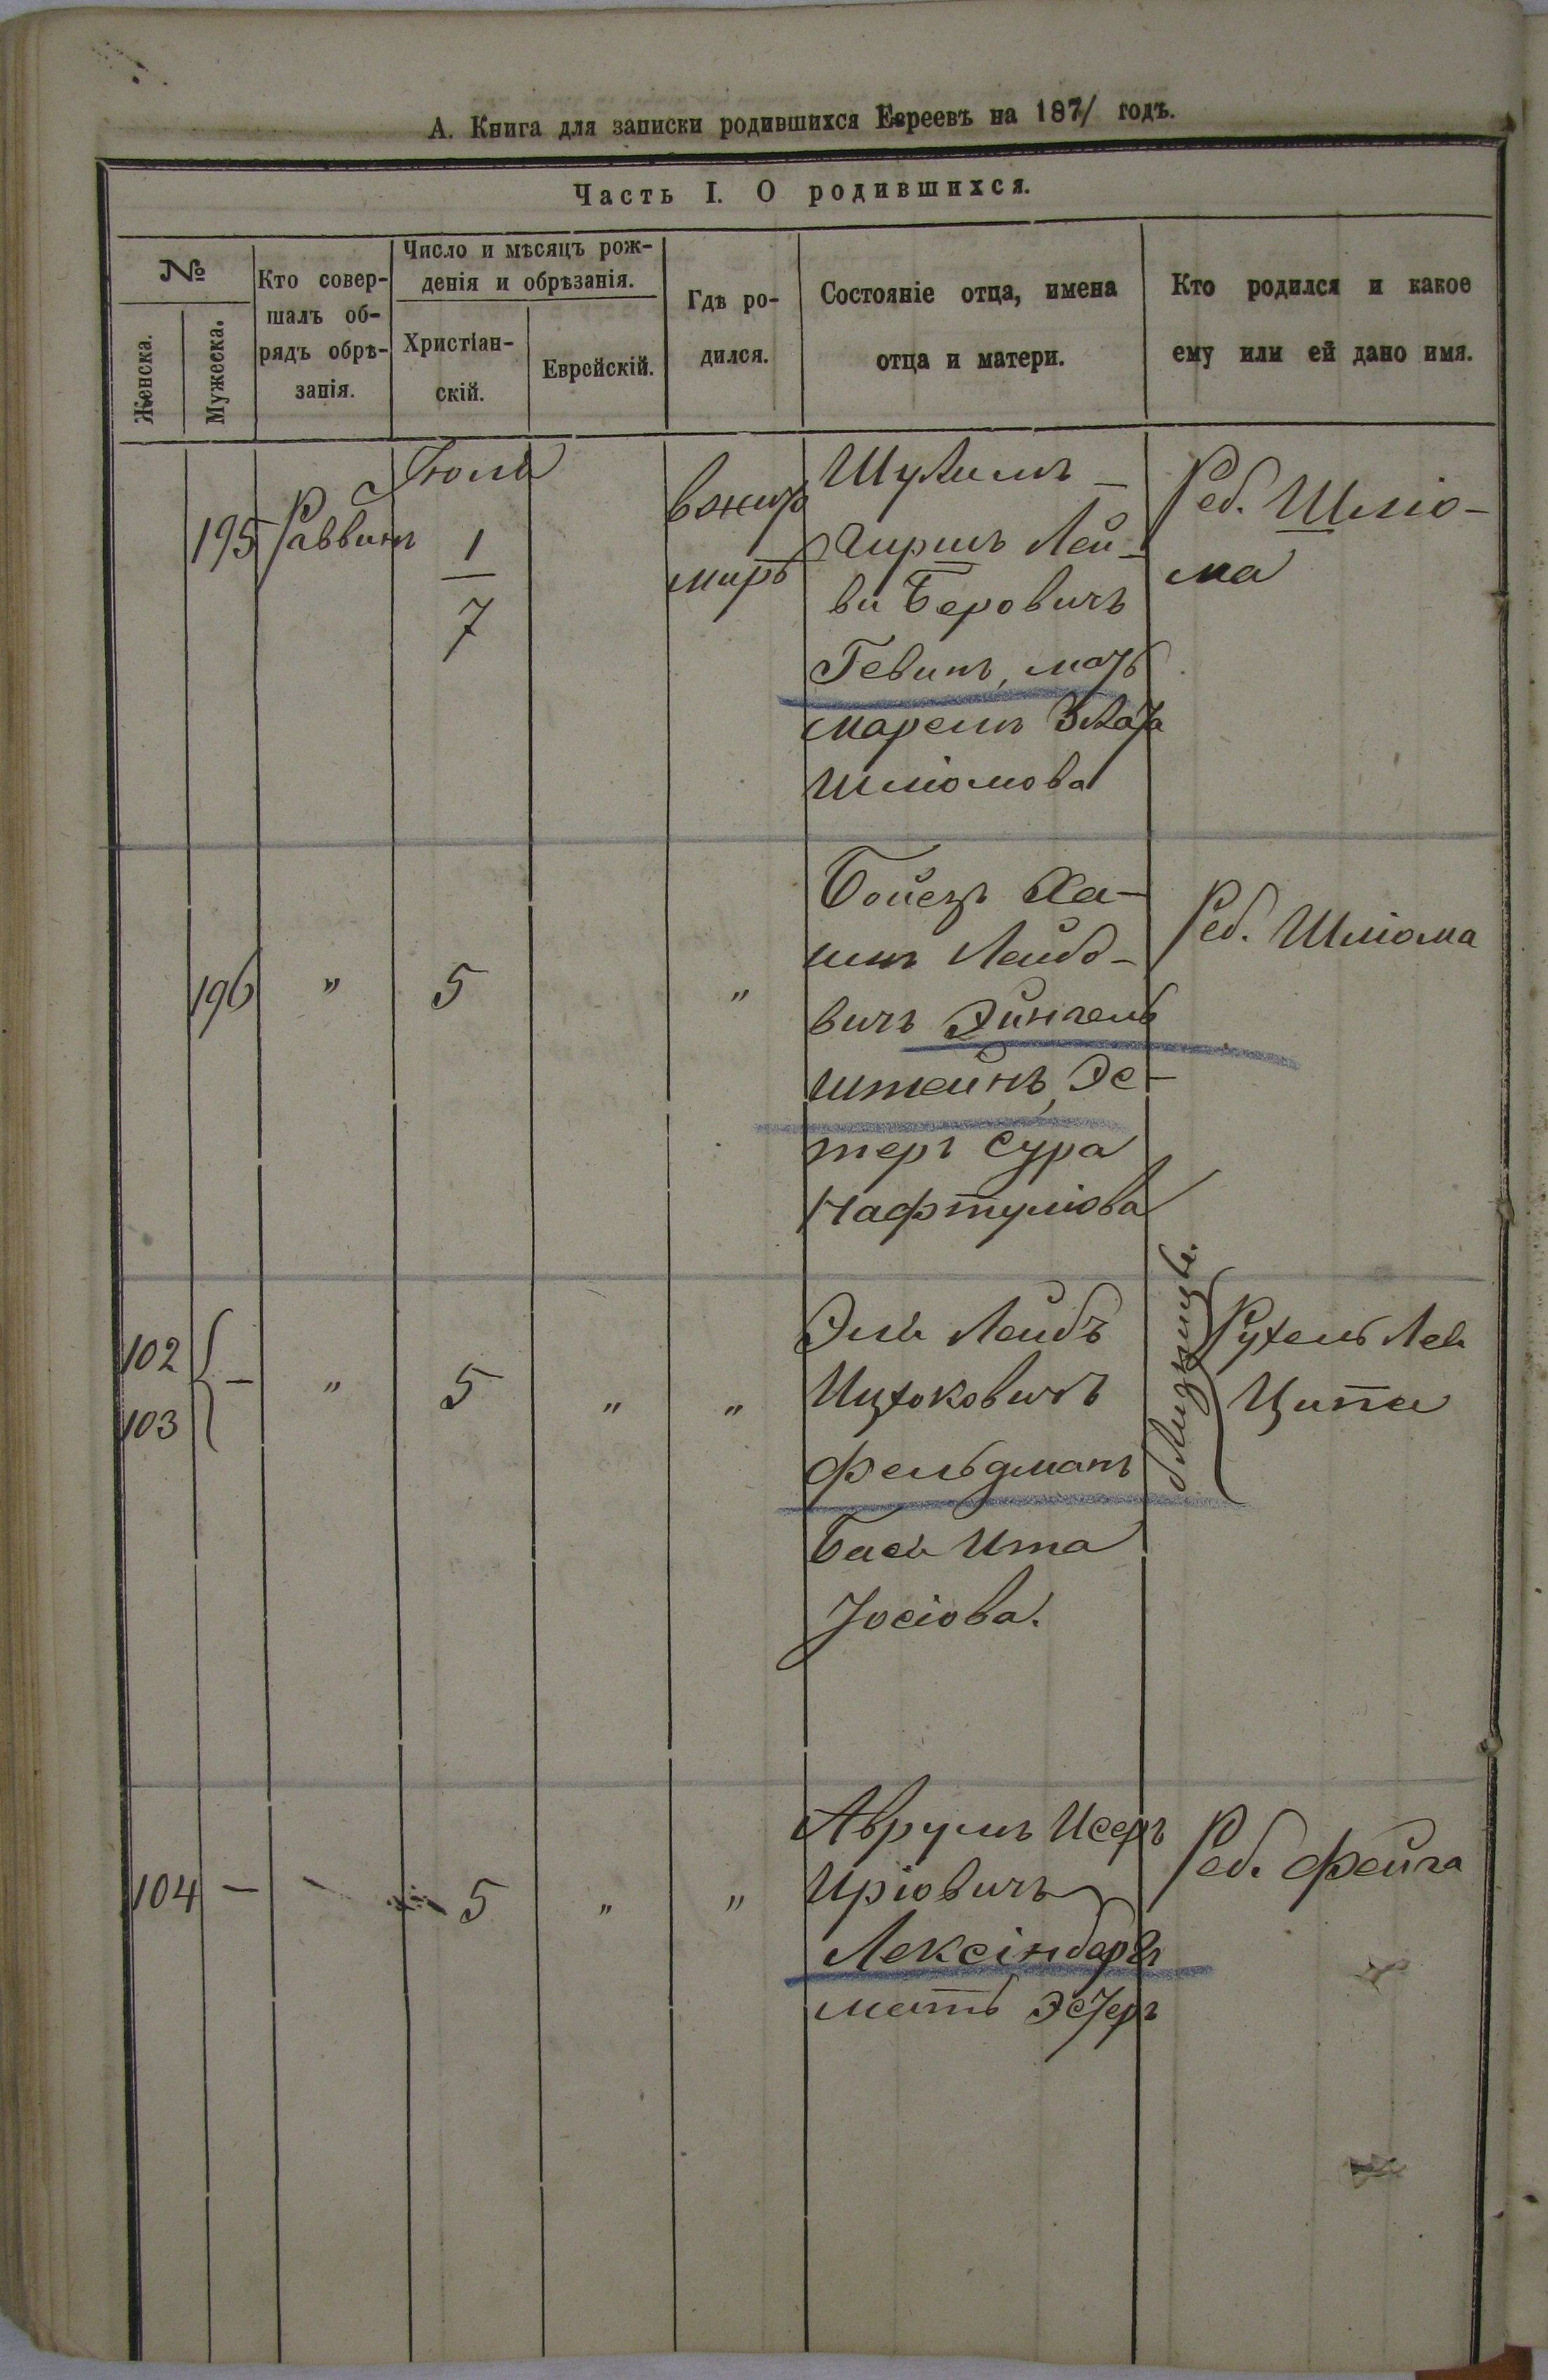 А. Книга для записки родившихся Евреевъ на 1871 годъ.
Часть I. О родившихся.
№
Женска.
Мужеска.
Кто совер-
шалъ об-
рядъ обрѣ-
занія.
Число и мѣсяцъ рож-
денія и обрѣзанія.
Христіан-
скій.
Еврейскій.
Гдѣ ро-
дился.
Состояніе отца, имена
отца и матери.
Кто родился и какое
ему или ей дано имя.
195
Раввинъ
Іюль
1
7
миръ
Гиршъ Лей-
Беровичъ
Левинъ, мать
Злата
Шліомова
Реб. Шліо-
ма
196
"
5
"
Ха-
имъ Лейбо-
вичъ Эйнгель
штейнъ, Эс-
теръ Сура
Нафтуліова
Реб. Шліома
102
103
—
"
5
"
"
Эль Лейбъ
Ицхоковичъ
Фельдманъ
Бася Ита
Іосіова.
близнецы.
Рухель Лея
Ципа
104
—
5
"
"
Аврумъ Исеръ
Иріовичъ
Лексінбергъ
мать Эстеръ
Реб. Фейга